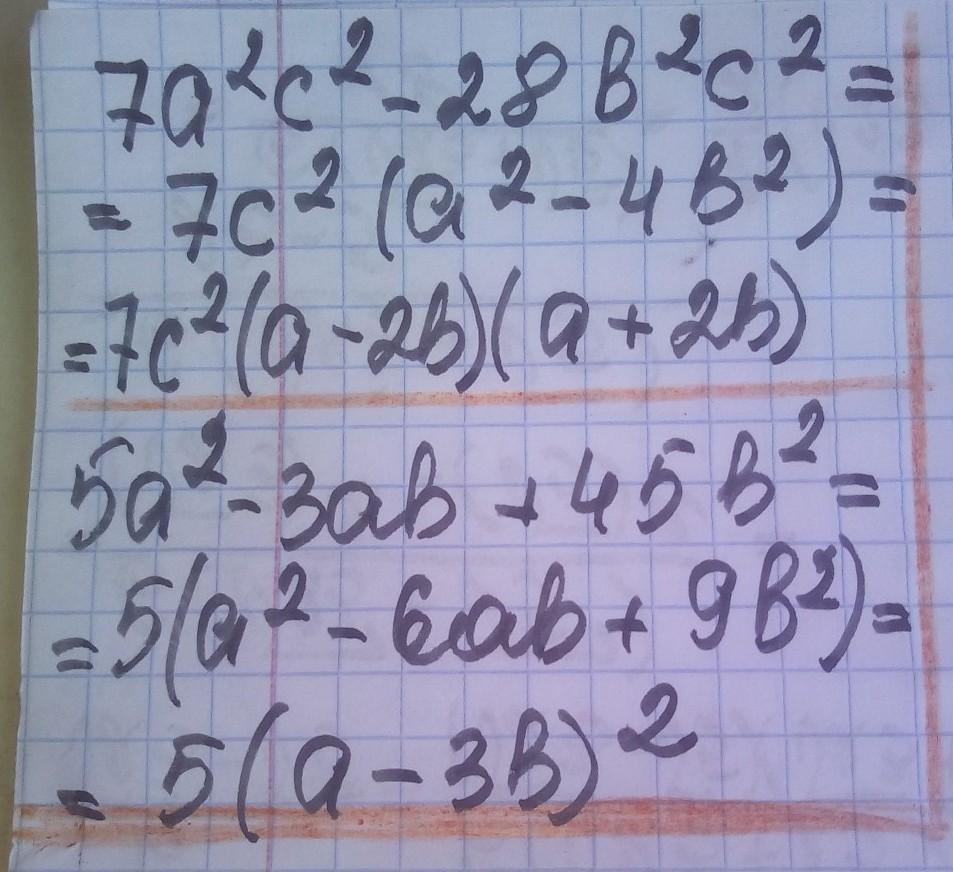 7a²c² - 28b²c² =
= 7c² (a² - 4b²) =
= 7c² (a - 2b)(a + 2b)
5a² - 3ab + 45b² =
= 5(a² - 6ab + 9b²) =
= 5(a - 3b)²